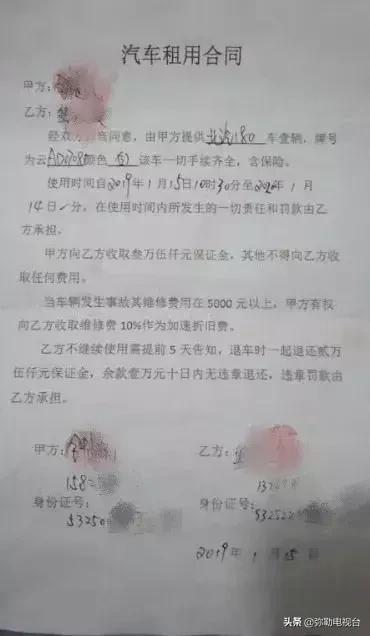 汽车租用合同
甲方：
乙方：
经双方 商同意，由甲方提供 北汽180 车壹辆，牌号
为云AD 颜色 白 该车一切手续齐全，含保险。
使用时间自2019年1月15日10时30分至2020年1月
14日 分，在使用时间内所发生的一切责任和罚款由乙
方承担。
甲方向乙方收取叁万伍仟元保证金，其他不得向乙方收
取任何费用。
当车辆发生事故其维修费用在5000元以上，甲方有权
向乙方收取维修费10%作为加速折旧费。
乙方不继续使用需提前5天告知，退车时一起退还贰万
伍仟元保证金，余款壹万元十日内无违章退还，违章罚款由
乙方承担。
甲方： 乙方：
158 137
身份证号： 身份证号：
53250 532522
2019年1月15日
头条 @弥勒电视台